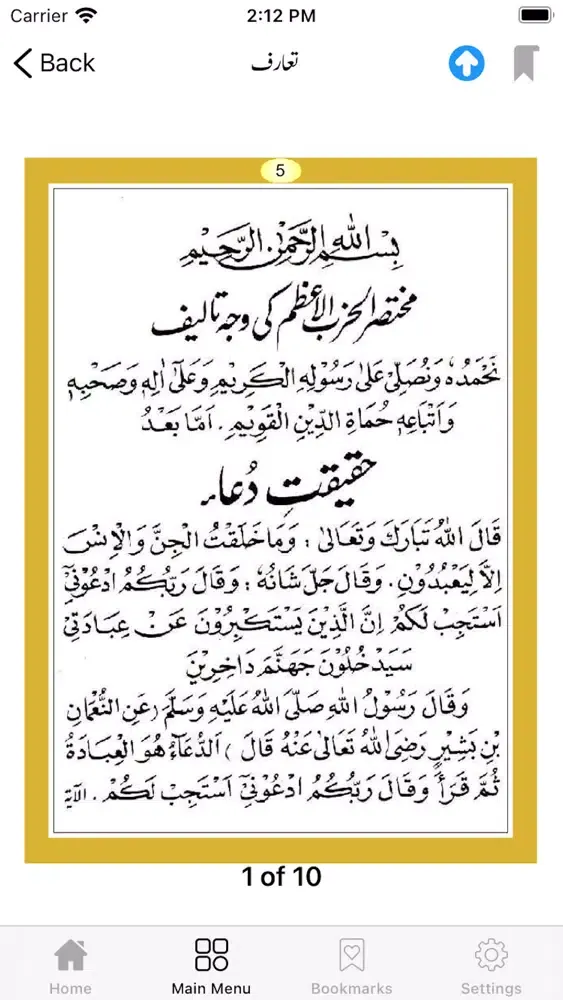 Carrier 2:12 PM
Back تعارف
5
بِسْمِ اللهِ الرَّحْمٰنِ الرَّحِيْمِ
مختصر الحزب الاعظم کی وجہ تالیف
نَحْمَدُهٗ وَنُصَلِّيْ عَلٰى رَسُوْلِهِ الْكَرِيْمِ وَعَلٰٓى اٰلِهٖ وَصَحْبِهٖ
وَاَتْبَاعِهٖ حُمَاةِ الدِّيْنِ الْقَوِيْمِ. اَمَّا بَعْدُ
حقیقتِ دُعاء
قَالَ اللهُ تَبَارَكَ وَتَعَالٰى : وَمَا خَلَقْتُ الْجِنَّ وَالْاِنْسَ
اِلَّا لِيَعْبُدُوْنِ. وَقَالَ جَلَّ شَانُهٗ : وَقَالَ رَبُّكُمُ ادْعُوْنِيْٓ
اَسْتَجِبْ لَكُمْ اِنَّ الَّذِيْنَ يَسْتَكْبِرُوْنَ عَنْ عِبَادَتِيْ
سَيَدْخُلُوْنَ جَهَنَّمَ دَاخِرِيْنَ
وَقَالَ رَسُوْلُ اللهِ صَلَّى اللهُ عَلَيْهِ وَسَلَّمَ (عَنِ النُّعْمَانِ
بْنِ بَشِيْرٍ رَضِيَ اللهُ تَعَالٰى عَنْهُ قَالَ ) اَلدُّعَآءُ هُوَ الْعِبَادَةُ
ثُمَّ قَرَأَ وَقَالَ رَبُّكُمُ ادْعُوْنِيْٓ اَسْتَجِبْ لَكُمْ . الآية
1 of 10
Home Main Menu Bookmarks Settings